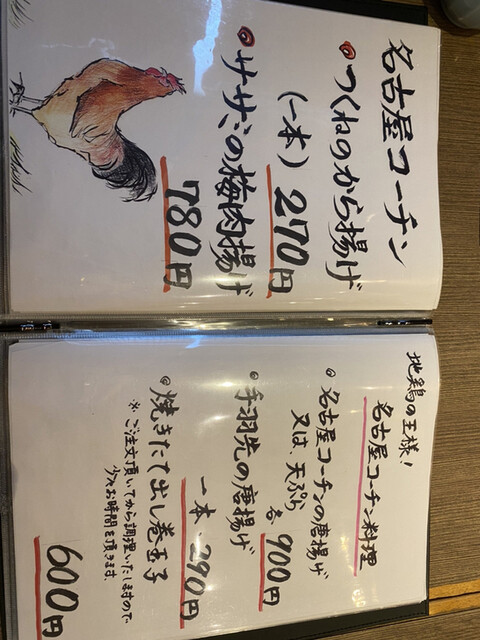 名古屋コーチン
つくねのから揚げ
(一本) 270円
ササミの梅肉揚げ
780円
地鶏の王様!
名古屋コーチン料理
名古屋コーチンの唐揚げ
又は、天ぷら
各 900円
手羽先の唐揚げ
一本 290円
焼きたて出し巻玉子
※ご注文頂いてから調理いたしますので
少々お時間を頂きます。
600円